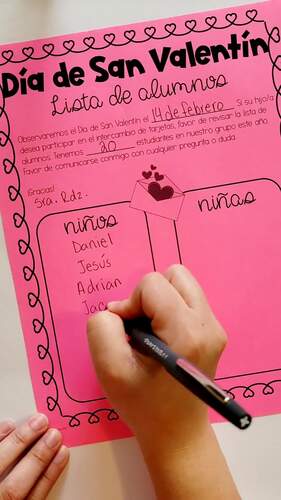 Día de San Valentín
Lista de alumnos
Observaremos el Día de San Valentín el 14 de febrero. Si su hijo/a
desea participar en el intercambio de tarjetas, favor de revisar la lista de
alumnos. Tenemos 20 estudiantes en nuestro grupo este año.
Favor de comunicarse conmigo con cualquier pregunta o duda.
¡Gracias!
Sra. Rdz.
niños
Daniel
Jesús
Adrian
Jac
niñas